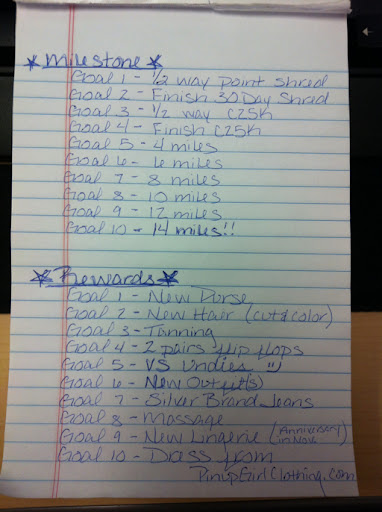 ★ Milestone ★
Goal 1 - 1/2 way point shred
Goal 2 - Finish 30 Day Shred
Goal 3 - 1/2 way C25K
Goal 4 - Finish C25K
Goal 5 - 4 miles
Goal 6 - 6 miles
Goal 7 - 8 miles
Goal 8 - 10 miles
Goal 9 - 12 miles
Goal 10 - 14 miles!!
★ Rewards ★
Goal 1 - New Purse
Goal 2 - New Hair (cut & color)
Goal 3 - Tanning
Goal 4 - 2 pairs flip flops
Goal 5 - VS undies !!)
Goal 6 - New Outfit(s)
Goal 7 - Silver Brand Jeans
Goal 8 - Massage
Goal 9 - New Lingerie (Anniversary in Nov.)
Goal 10 - Dress from
PinUpGirlClothing.com